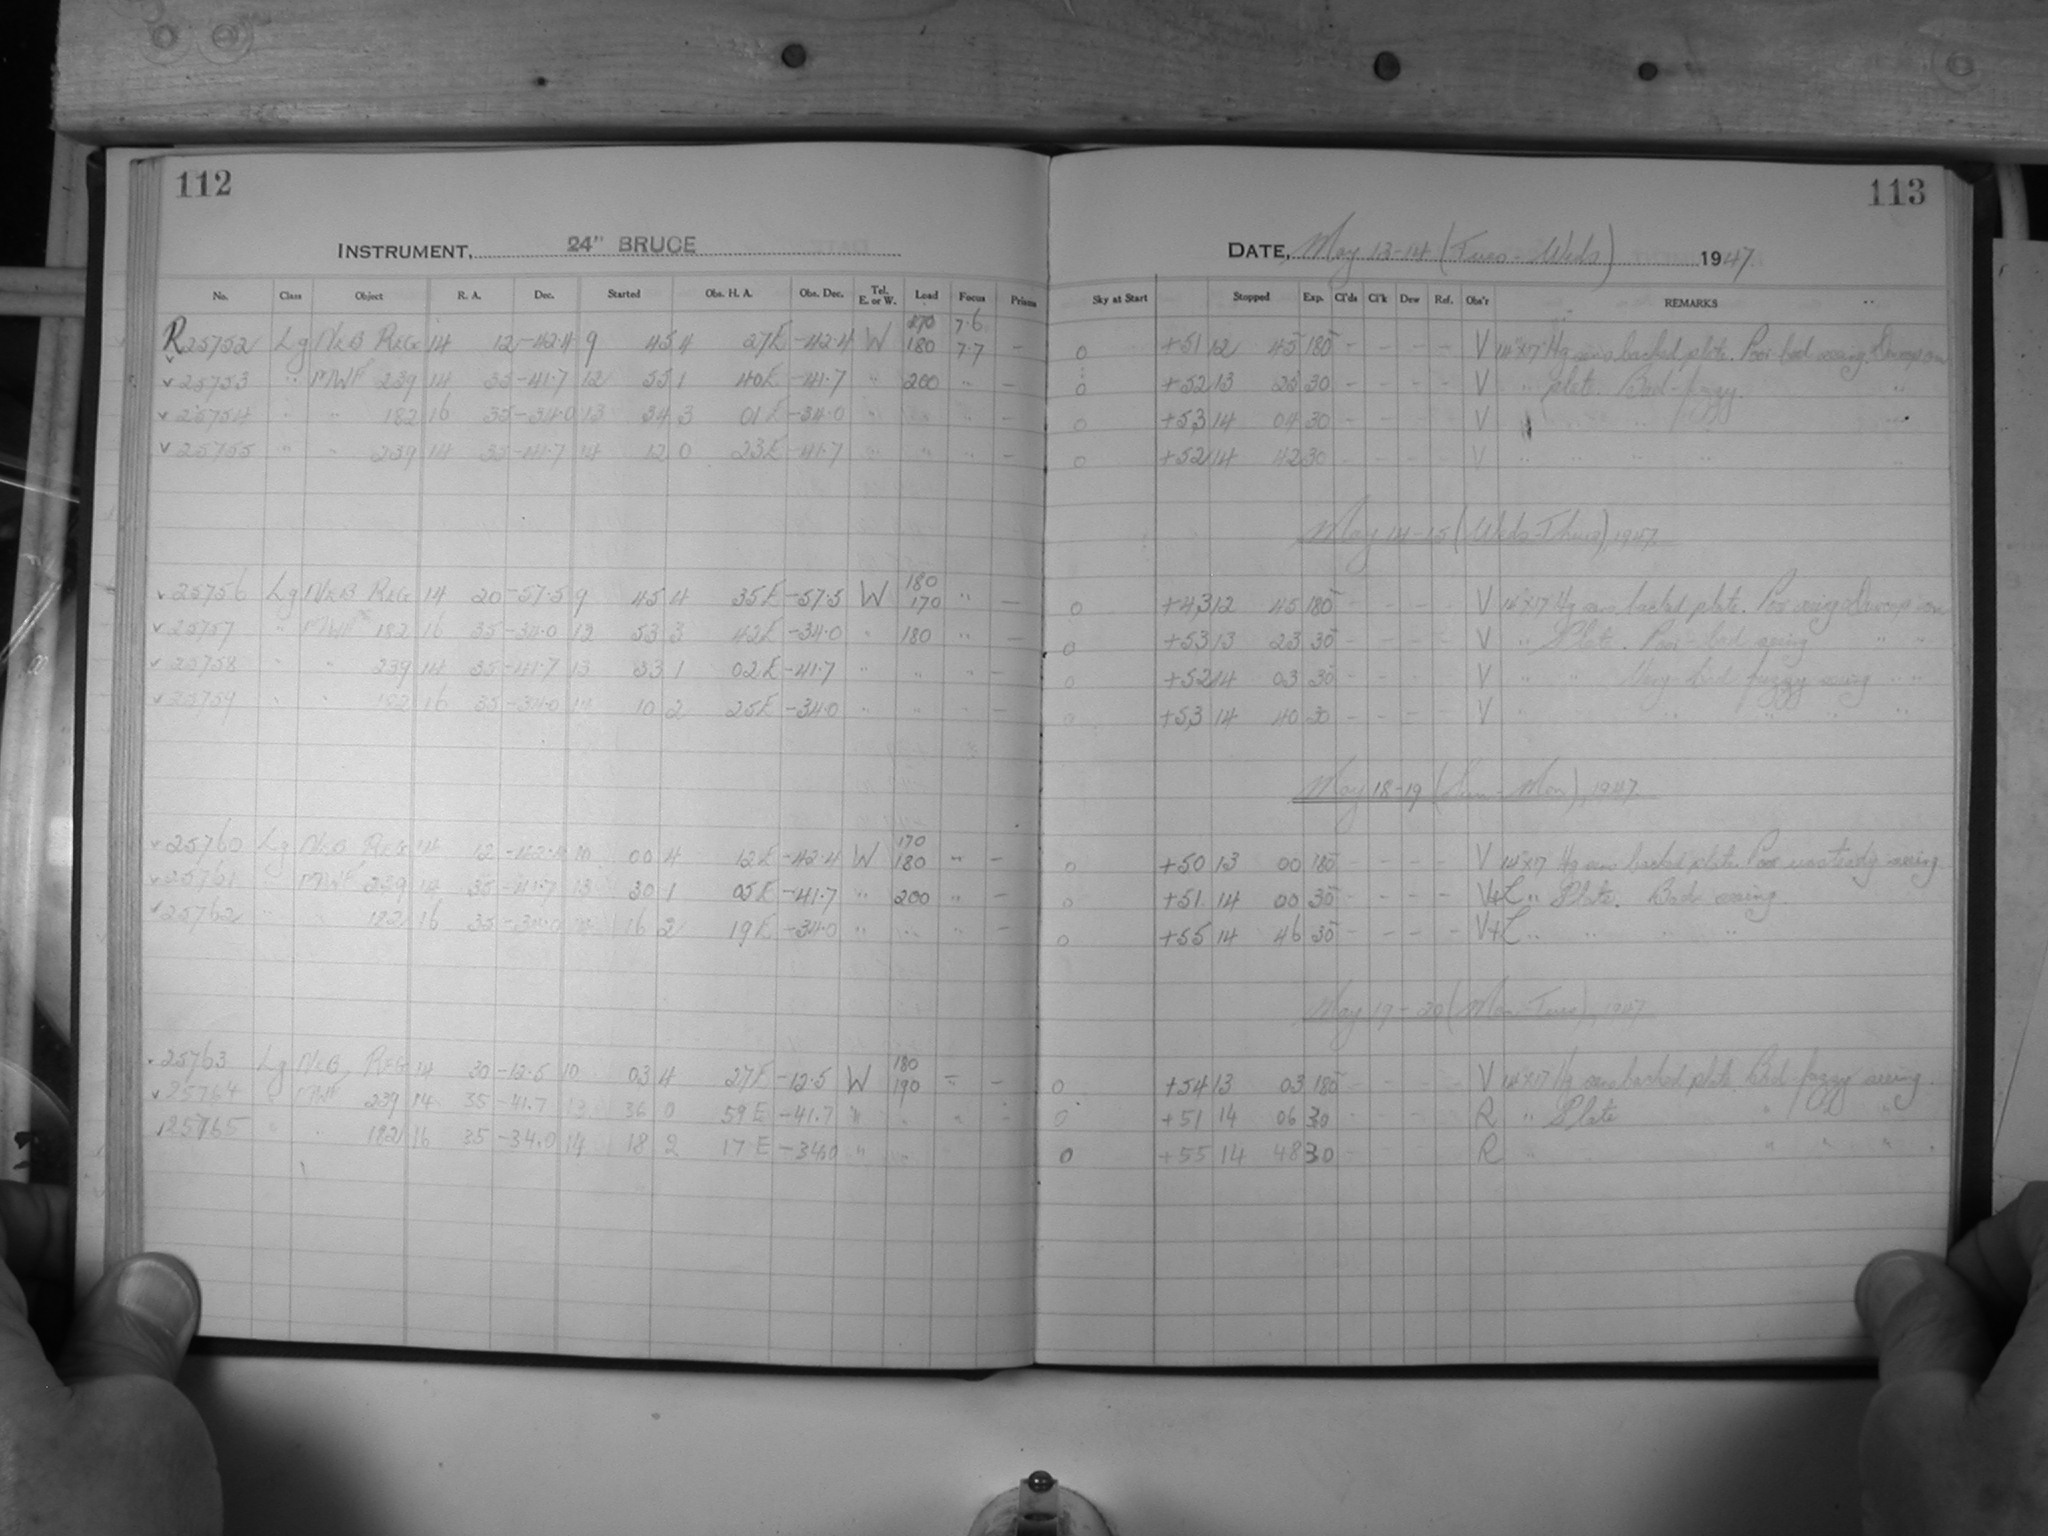 112
INSTRUMENT, 24" BRUCE
No. Class Object R. A. Dec. Started Obs. H. A. Obs. Dec. Tel. E. or W. Load Focus Prism
170 7.6
R 25752 Lg NEB REG 14 12 -42.4 9 45 4 27E -42.4 W 180 7.7 -
v 25753 " MWF 239 14 35 -41.7 12 55 1 40E -41.7 " 200 " -
v 25754 " " 182 16 35 -34.0 13 34 3 01E -34.0 " " " -
v 25755 " " 239 14 35 -41.7 14 12 0 23E -41.7 " " " -
180
v 25756 Lg NEB REG 14 20 -57.5 9 45 4 35E -57.5 W 170 " -
v 25757 " MWF 182 16 35 -34.0 12 53 3 42E -34.0 " 180 " -
v 25758 " " 239 14 35 -41.7 13 33 1 02E -41.7 " " " -
v 25759 " " 182 16 35 -34.0 14 10 2 25E -34.0 " " " -
170
v 25760 Lg NEB REG 14 12 -42.4 10 00 4 12E -42.4 W 180 " -
v 25761 MWF 239 14 35 -41.7 13 30 1 05E -41.7 " 200 " -
v 25762 " " 182 16 35 -34.0 14 16 2 19E -34.0 " " " -
180
v 25763 Lg NEB REG 14 30 -12.5 10 03 4 27E -12.5 W 190 " -
v 25764 " MWF 239 14 35 -41.7 13 36 0 59E -41.7 " " " -
25765 " " 182 16 35 -34.0 14 18 2 17E -34.0 " "
113
DATE, May 13-14 (Tues-Weds) 1947
Sky at Start Stopped Exp. Cl'ds Cl'k Dew Ref. Obs'r REMARKS
0 +51 12 45 180 - - - - V 14"x17" Hg backed plate. Poor-bad seeing.
0 +52 13 25 30 - - - - V " plate. Bad-fuzzy. "
0 +53 14 04 30 - - - - V " "
0 +52 14 42 30 - - - - V " " " " "
May 14-15 (Weds-Thurs), 1947.
0 +43 12 45 180 - - - - V 14"x17 Hg backed plate. Poor seeing
0 +53 13 23 30 - - - - V " Plate. Poor-bad seeing " "
0 +52 14 03 30 - - - - V " " Very bad fuzzy seeing " "
0 +53 14 40 30 - - - - V " " " " "
May 18-19 (Sun-Mon), 1947.
0 +50 13 00 180 - - - - V 14"x17 Hg backed plate. Poor unsteady seeing
0 +51 14 00 30 - - - - V+L " Plate. Bad seeing.
0 +55 14 46 30 - - - - V+L " " " "
May 19-20 (Mon-Tues), 1947
0 +54 13 03 180 - - - - V 14"x17 Hg backed plate. Bad fuzzy seeing.
0 +51 14 06 30 - - - - R " Plate " " "
0 +55 14 48 30 - - - - R " " " " "